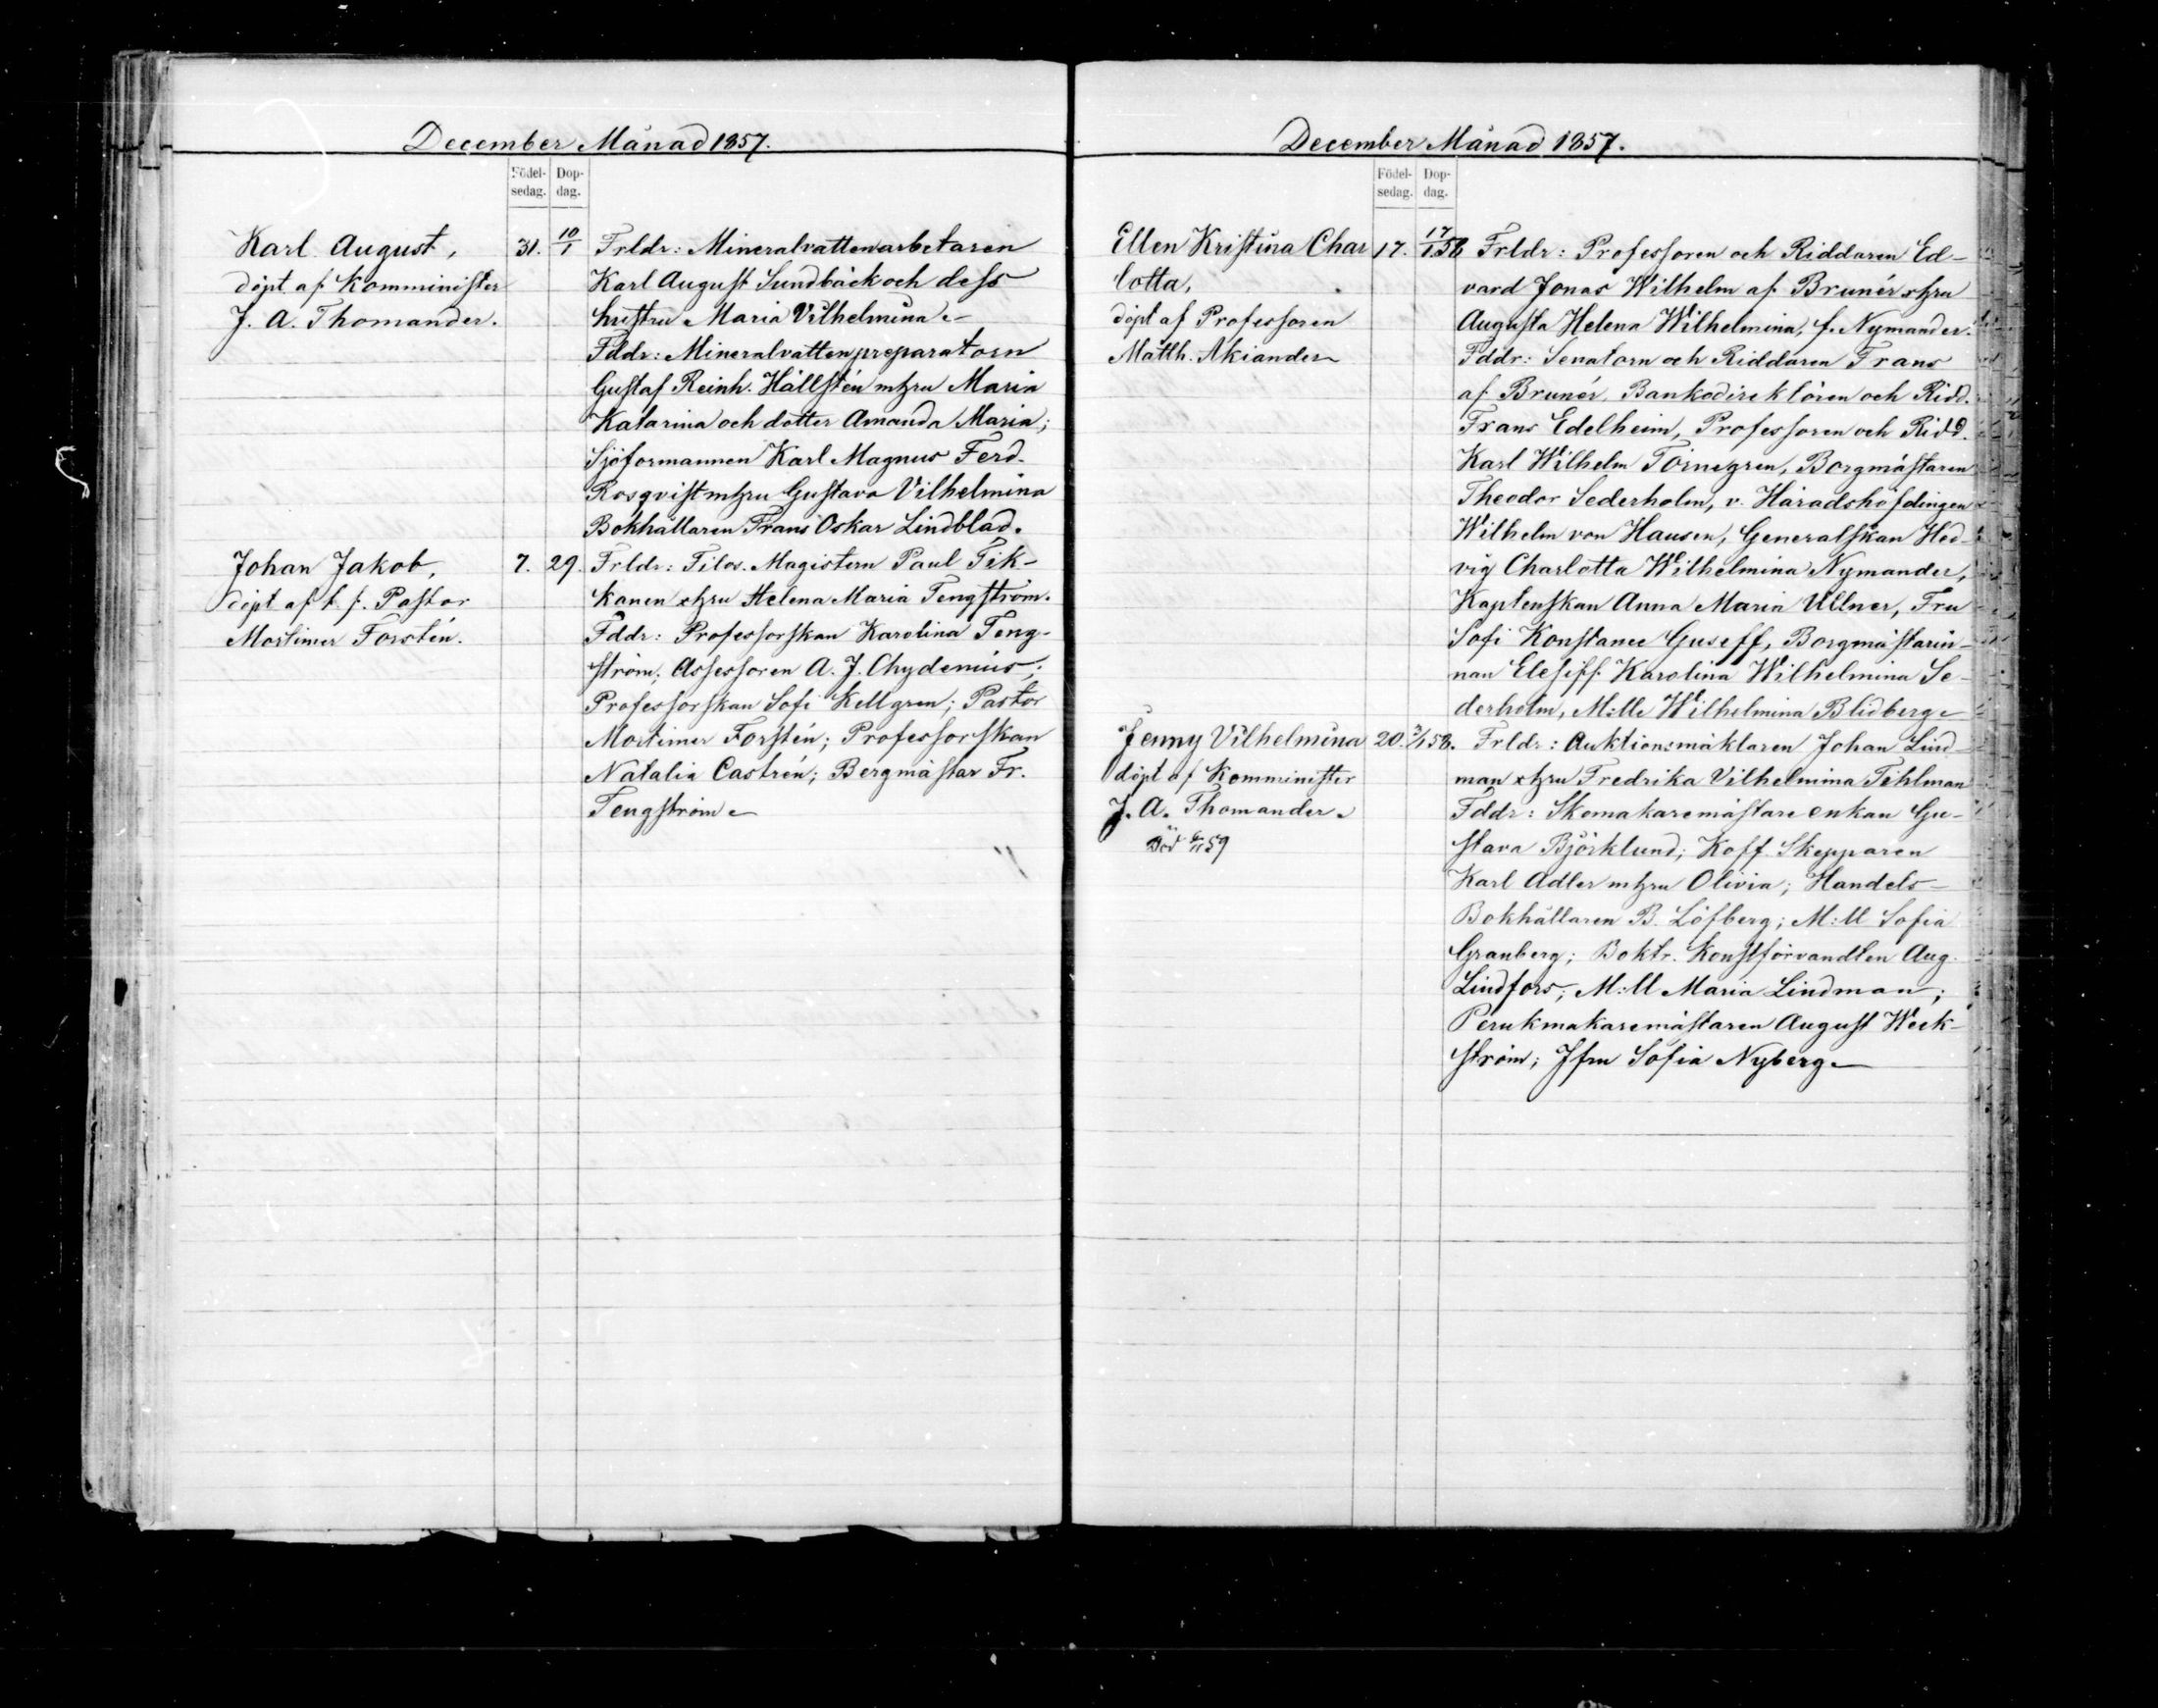 December Månad 1857.
Födel-sedag. Dop-dag.
Karl August, 31. 10/1 Frldr: Mineralvattenarbetaren
döpt af Komminister Karl August Sundbäck och dess
J. A. Thomander. hustru Maria Vilhelmina
Fddr: Mineralvattenpreparatorn
Gustaf Reinh. Hällstén m hru Maria
Katarina och dotter Amanda Maria;
Sjöformannen Karl Magnus Ferd.
Rosqvist m hru Gustava Vilhelmina
Bokhållaren Frans Oskar Lindblad.
Johan Jakob, 7. 29. Frldr: Filos. Magistern Paul Tik-
döpt af t. f. Pastor kanen o hru Helena Maria Tengström.
Mortimer Forstén. Fddr: Professorskan Karolina Teng-
ström; Assessoren A. J. Chydenius;
Professorskan Sofi Kellgren; Pastor
Mortimer Forstén; Professorskan
Natalia Castrén; Bergmästar Fr.
Tengström
December Månad 1857.
Födel-sedag. Dop-dag.
Ellen Kristina Char 17. 17/1 58 Frldr: Professoren och Riddaren Ed-
lotta, vard Jonas Wilhelm af Brunér o hru
döpt af Professoren Augusta Helena Wilhelmina, f. Nymander.
Matth. Akiander Fddr: Senatorn och Riddaren Frans
af Brunér, Bankodirektören och Ridd.
Frans Edelheim, Professoren och Ridd.
Karl Wilhelm Törnegren, Borgmästaren
Theodor Sederholm, v. Häradshöfdingen
Wilhelm von Hausen, Generalskan Hed-
vig Charlotta Wilhelmina Nymander,
Kaptenskan Anna Maria Ullner, Fru
Sofi Konstance Guseff, Borgmästarin-
nan Elesiff Karolina Wilhelmina Se-
derholm, M:lle Wilhelmina Blidberg
Jenny Vilhelmina 20. 58. Frldr: Auktionsmäklaren Johan Lind-
döpt af Komminister man o hru Fredrika Vilhelmina Tihlman
J. A. Thomander. Fddr: Skomakaremästare enkan Gu-
Död 59 stava Björklund; Koff. Skepparen
Karl Adler m hru Olivia; Handels-
Bokhållaren B. Löfberg; M:ll Sofia
Granberg; Boktr. Konstförvandten Aug.
Lindfors; M:ll Maria Lindman;
Perukmakaremästaren August Weck-
ström; Jfru Sofia Nyberg